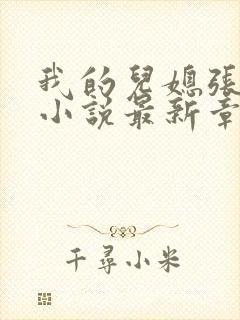 我的兒媳張
小說最新章
千尋小米